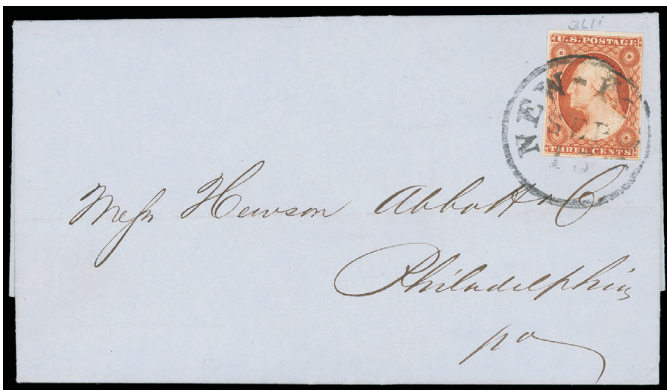 3LLi
U.S. POSTAGE
THREE CENTS
NEW-Y
SEP
13
Messrs Hewson Abbott & Co
Philadelphia
pa